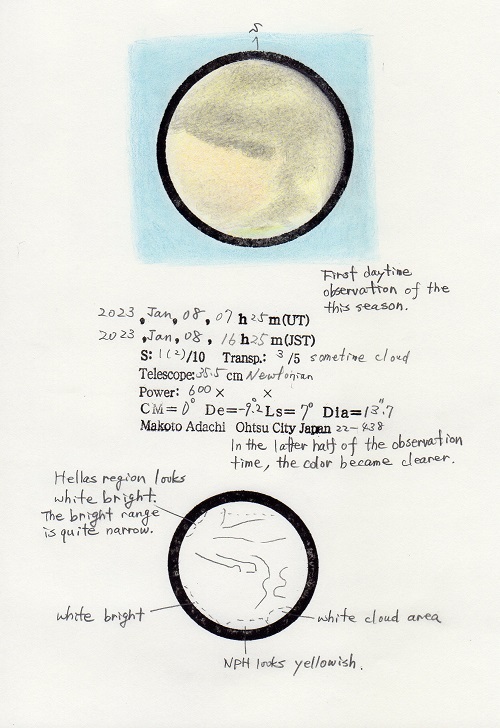 S
First daytime
observation of the
this season.
2023, Jan, 08, 07 h 25 m(UT)
2023, Jan, 08, 16 h 25 m(JST)
S: 1(2)/10 Transp.: 3/5 sometime cloud
Telescope: 35.5 cm Newtonian
Power: 600 × ×
CM= 0° De=-9.2 Ls= 7° Dia=13".7
Makoto Adachi Ohtsu City Japan 22-438
In the latter half of the observation
time, the color became clearer.
Hellas region looks
white bright.
The bright range
is quite narrow.
white bright
white cloud area
NPH looks yellowish.